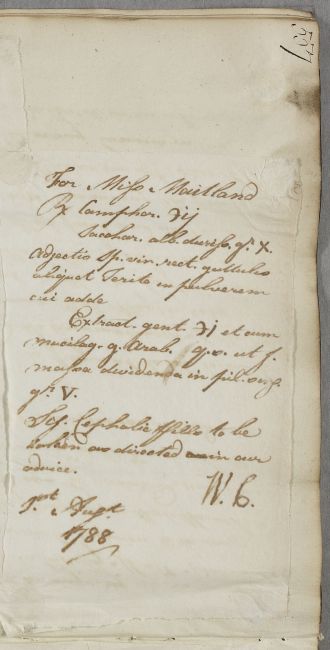 337
For Miss Maitland
℞ Camphor. ʒij
Sacchar. alb. duriss. gr. X.
Adjectis Sp. vin. rect. guttulis
aliquot Terito in pulverem
cui adde
Extract. gent. ʒj et cum
mucilag. g. Arab. q. s. ut f.
massa dividenda in pil. sing.
gr. V.
Sig. Cephalic Pills to be
taken as directed in our
advice.
W. C.
1st. Augt.
1788